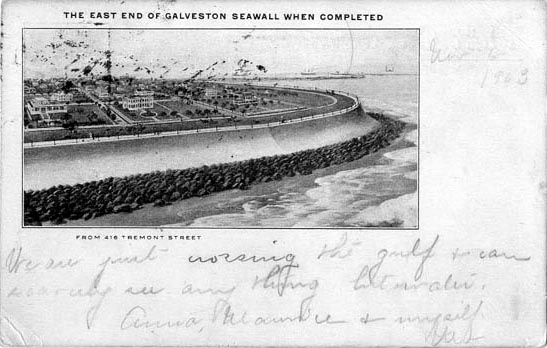 THE EAST END OF GALVESTON SEAWALL WHEN COMPLETED
1903
FROM 416 TREMONT STREET
We are just crossing the gulf & can
see any thing but water.
Anna, Maurice & myself